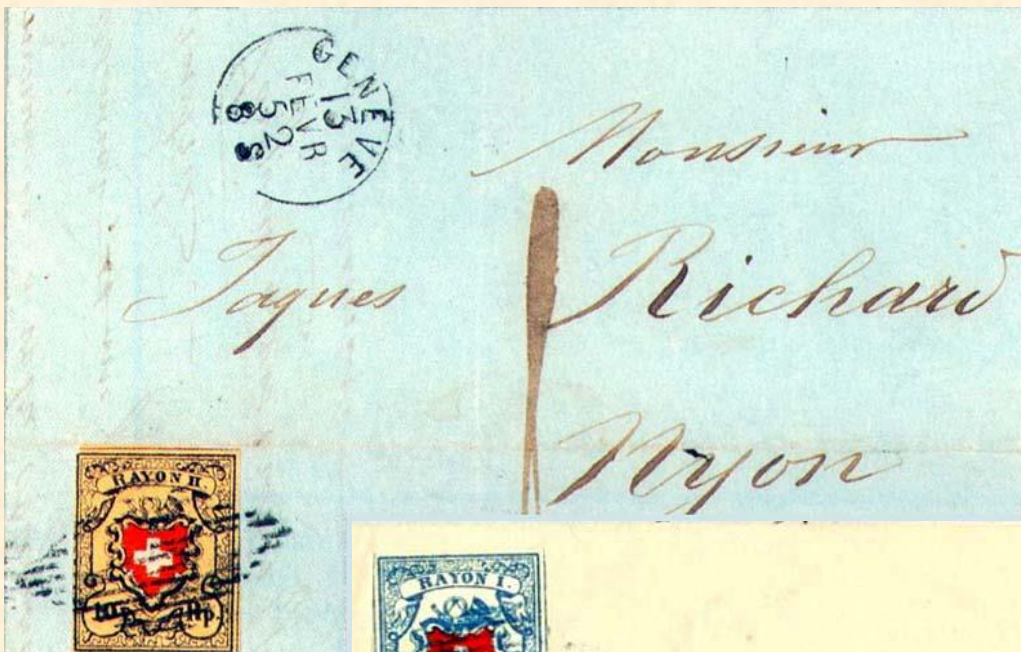 GENÈVE
13
FEVR
52
8
Monsieur
Jaques Richard
Nyon
RAYON II.
10 Rp.
RAYON I.